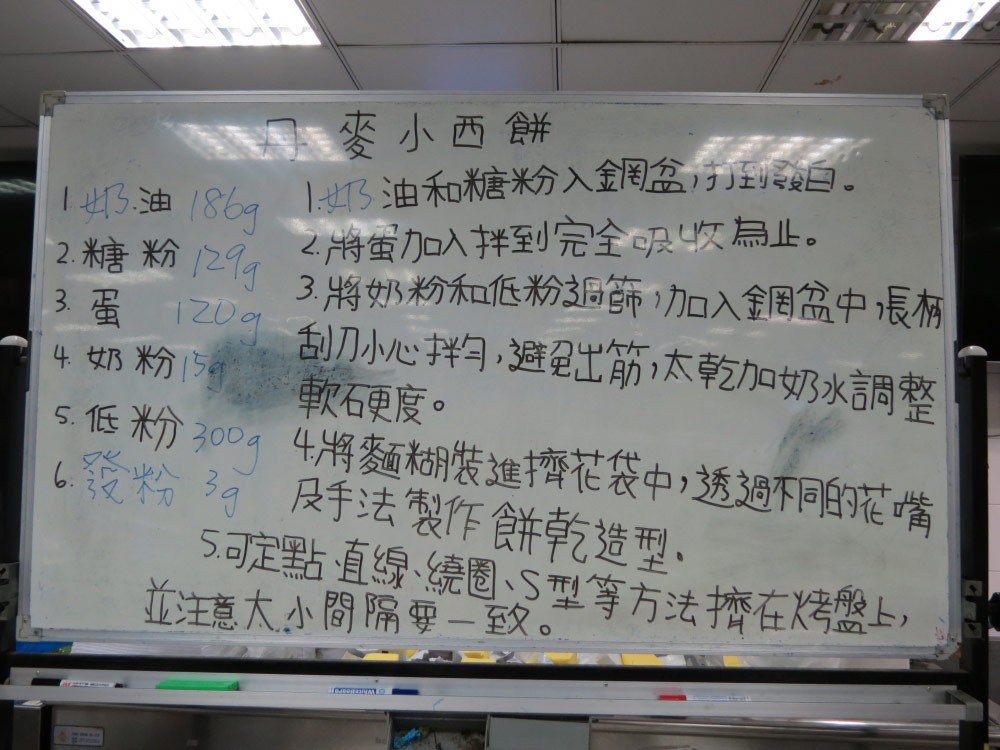 丹麥小西餅
1.奶.油 186g
2.糖粉 129g
3.蛋 120g
4.奶粉 15g
5.低粉 300g
6.發粉 3g
1.奶油和糖粉入鋼盆,打到發白。
2.將蛋加入拌到完全吸收為止。
3.將奶粉和低粉過篩,加入鋼盆中,長柄
刮刀小心拌勻,避免出筋,太乾加奶水調整
軟硬度。
4.將麵糊裝進擠花袋中,透過不同的花嘴
及手法製作餅乾造型.
5.可定點、直線、繞圈、S型等方法擠在烤盤上,
並注意大小間隔要一致。
WhiteBoard